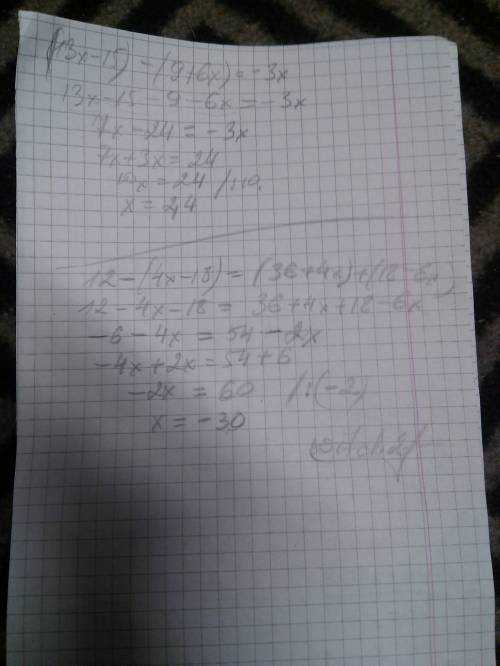 (13x-15)-(9+6x)=-3x
13x-15-9-6x=-3x
7x-24=-3x
7x+3x=24
10x=24 /:10
x=2,4
12-(4x-18)=(36+4x)+(18-6x)
12-4x-18=36+4x+18-6x
-6-4x=54-2x
-4x+2x=54+6
-2x=60 /:(-2)
x=-30